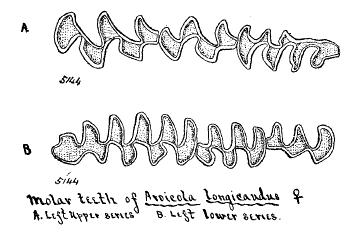 A
5144
B
5144
Molar teeth of Arvicola Longicaudus ♀
A. Left Upper series B. Left lower series.